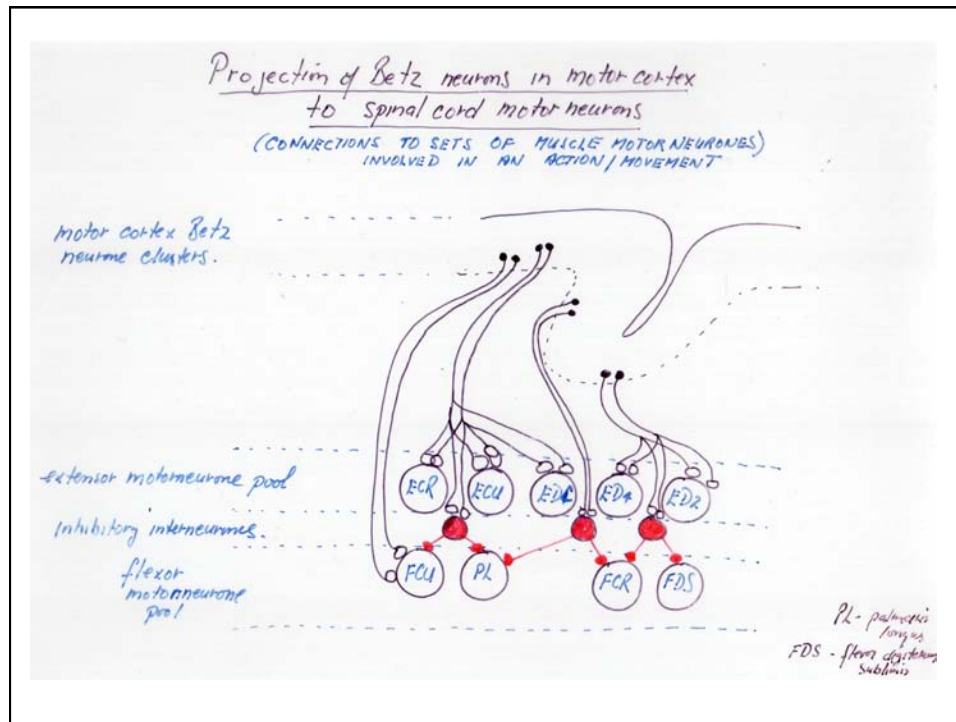 Projection of Betz neurons in motor cortex
to spinal cord motor neurons
(CONNECTIONS TO SETS OF MUSCLE MOTOR NEURONES)
INVOLVED IN AN ACTION/MOVEMENT
motor cortex Betz
neurone clusters.
extensor motorneurone pool
ECR ECU EDC ED4 ED2
Inhibitory interneurones.
flexor
motorneurone
pool
FCU PL FCR FDS
PL - palmaris
longus
FDS - flexor digitorum
sublimis